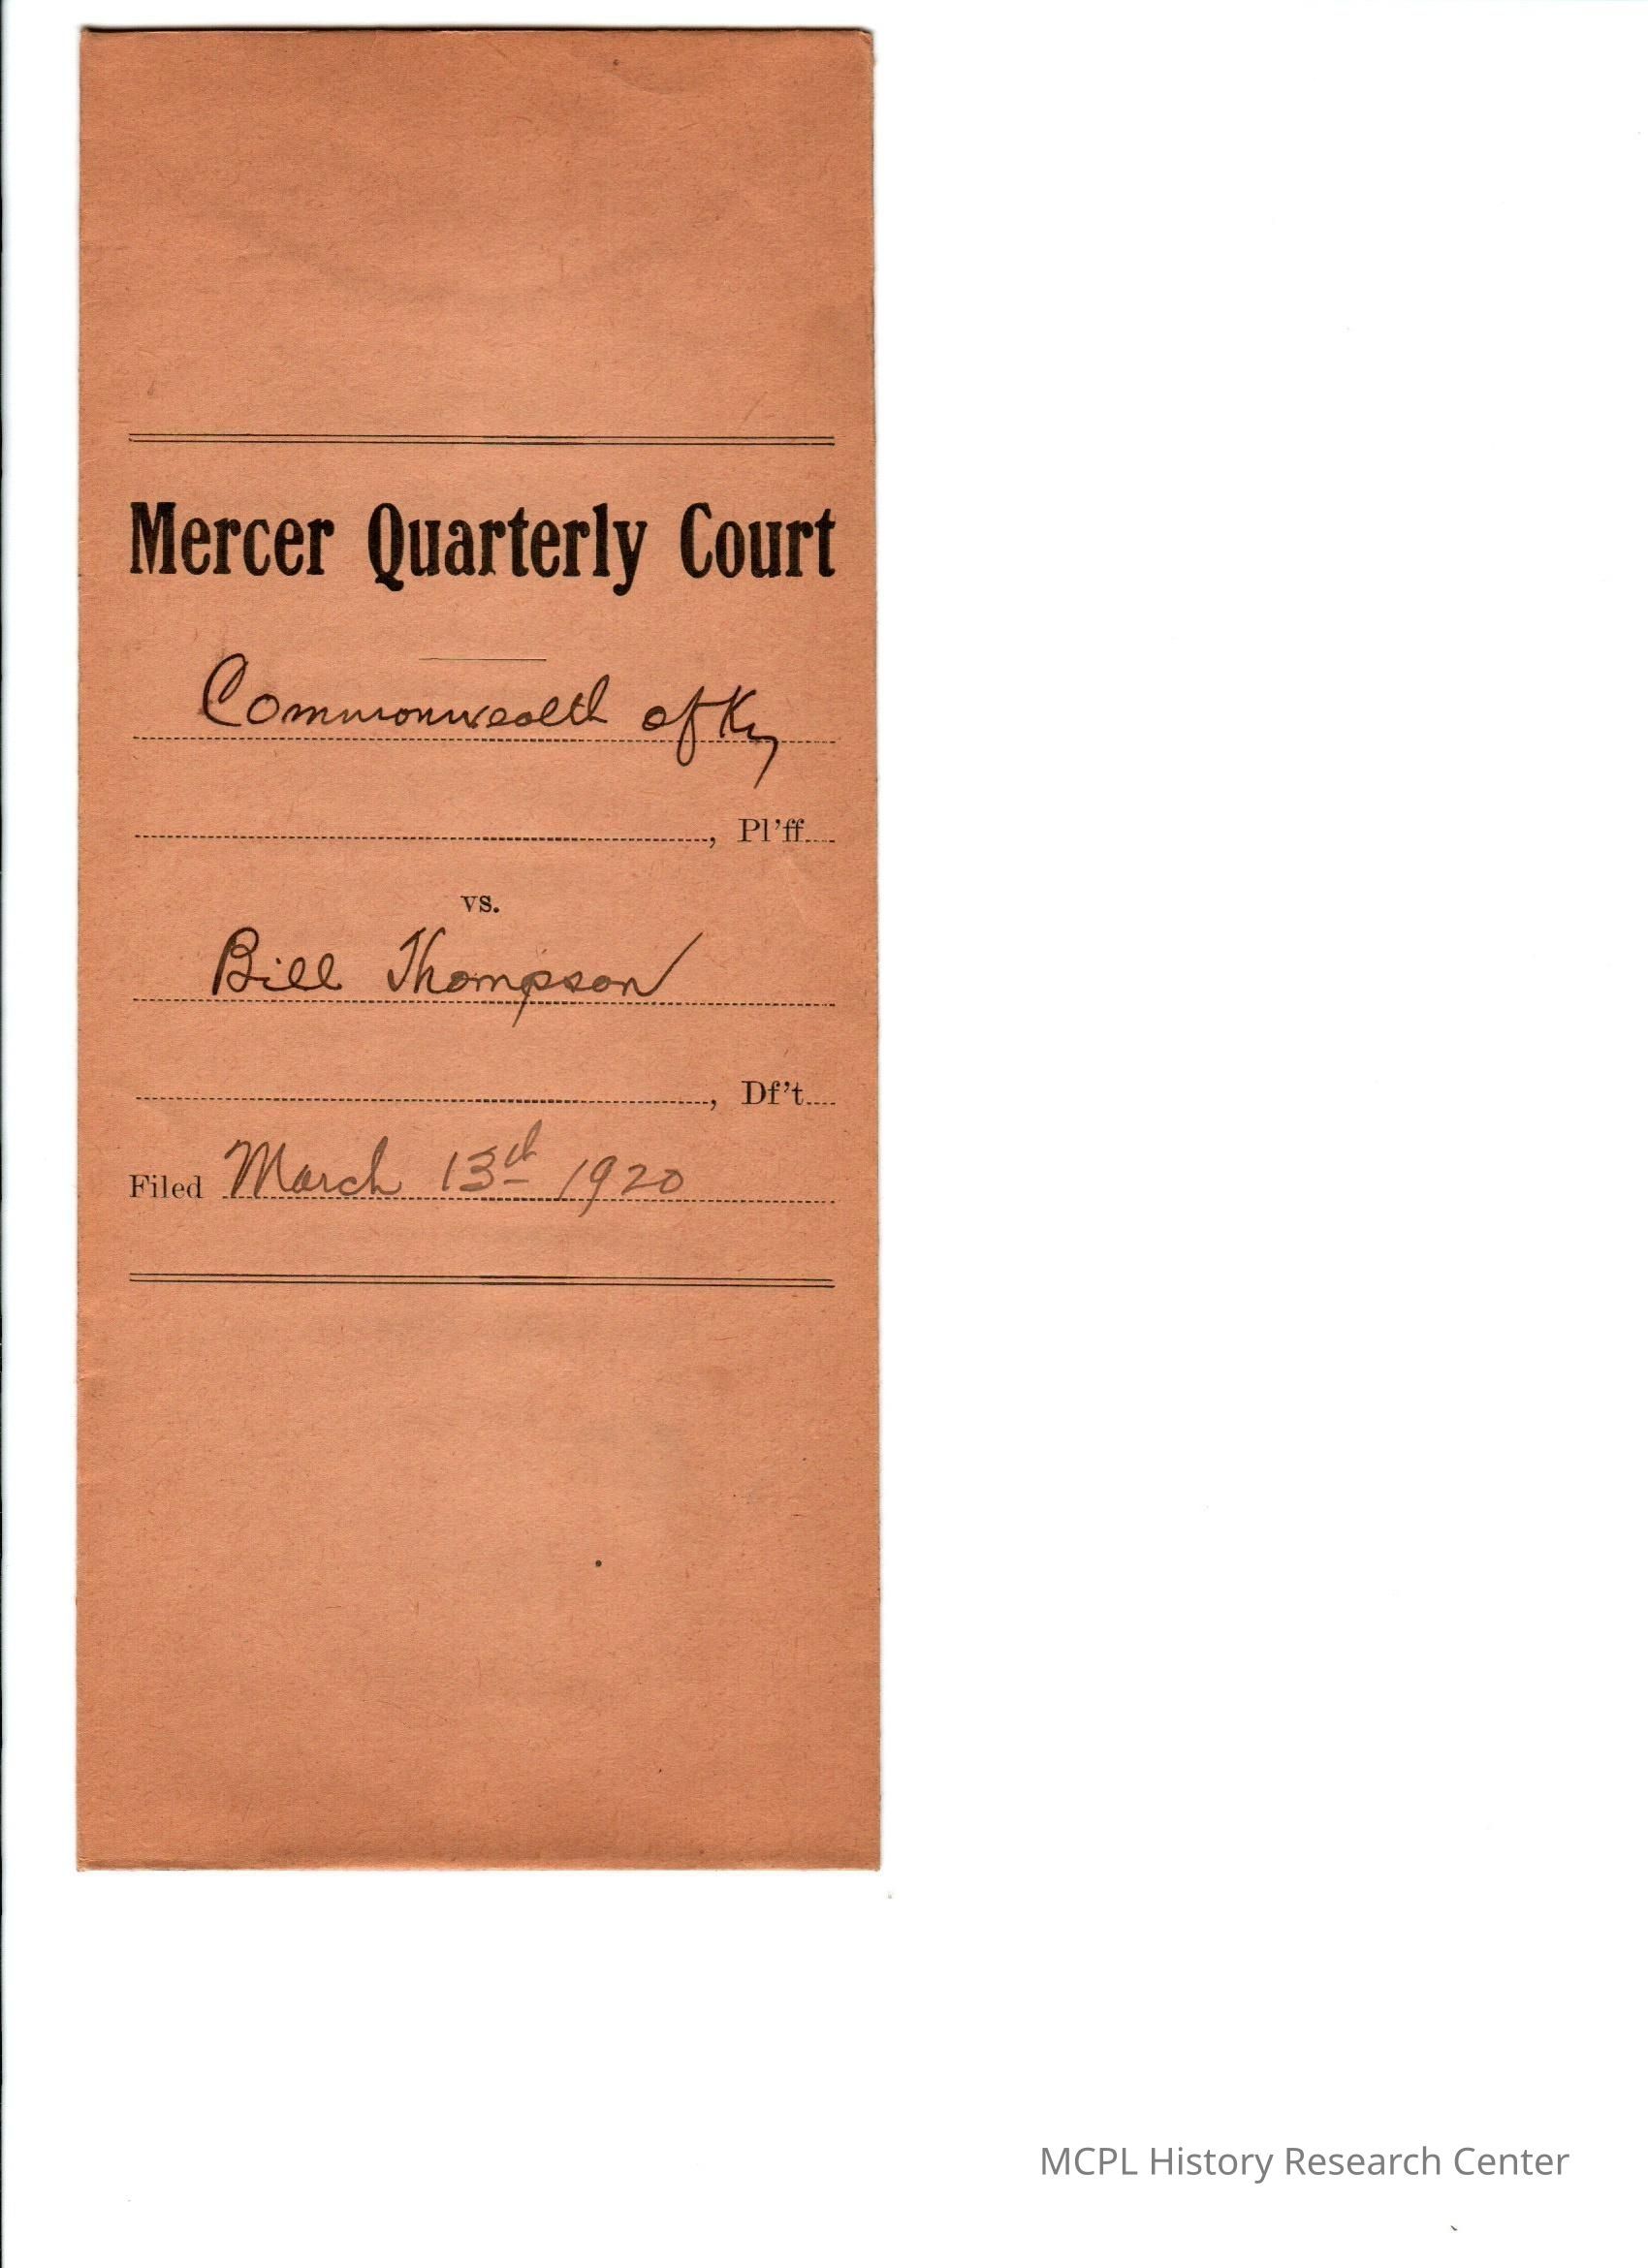 Mercer Quarterly Court
Commonwealth of Ky
, Pl'ff
vs.
Bill Thompson
, Df't
Filed March 13th 1920
MCPL History Research Center